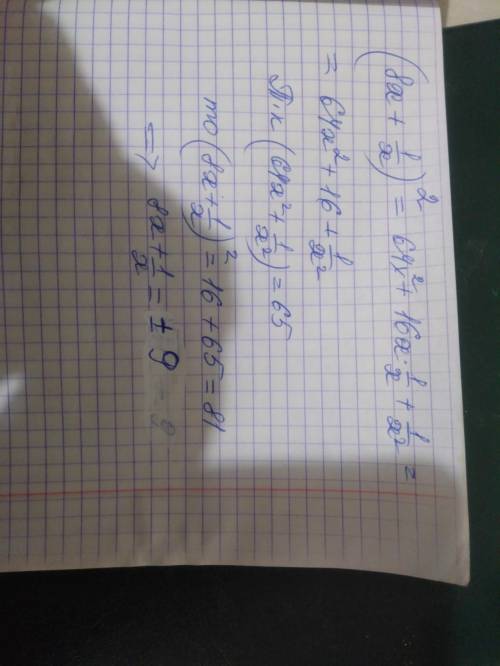 (8x + 1/x)² = 64x² + 16x · 1/x + 1/x² =
= 64x² + 16 + 1/x²
Т.к (64x² + 1/x²) = 65
то (8x + 1/x)² = 16 + 65 = 81
=> 8x + 1/x = + 9